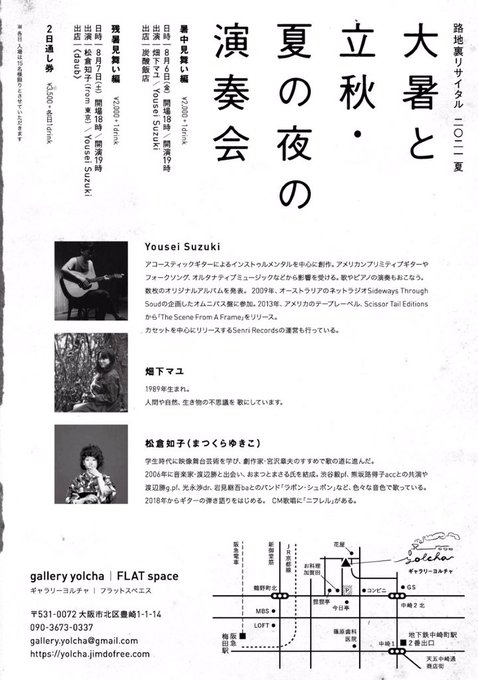 路地裏リサイタル 二〇二一 夏
大暑と
立秋・
夏の夜の
演奏会
暑中見舞い編 ¥2,000+1drink
日時 | 8月6日(金) 開場18時／開演19時
出演 | 畑下マユ／Yousei Suzuki
出店 | 炭酸飯店
残暑見舞い編 ¥2,000+1drink
日時 | 8月7日(土) 開場18時／開演19時
出演 | 松倉知子(from 東京)／Yousei Suzuki
出店 | 〈daub〉
2日通し券 ¥3,500+各日1drink
※ 各日、入場は15名様限りとさせていただきます
Yousei Suzuki
アコースティックギターによるインストゥルメンタルを中心に創作。アメリカンプリミティブギターや
フォークソング、オルタナティブミュージックなどから影響を受ける。歌やピアノの演奏もおこなう。
数枚のオリジナルアルバムを発表。 2009年、オーストラリアのネットラジオSideways Through
Soudの企画したオムニバス盤に参加。2013年、アメリカのテープレーベル、Scissor Tail Editions
から「The Scene From A Frame」をリリース。
カセットを中心にリリースするSenri Recordsの運営も行っている。
畑下マユ
1989年生まれ。
人間や自然、生き物の不思議を 歌にしています。
松倉知子(まつくらゆきこ)
学生時代に映像舞台芸術を学び、創作家・宮沢章夫のすすめで歌の道に進んだ。
2006年に音楽家・渡辺勝と出会い、おまつとまさる氏を結成。渋谷毅pf、熊坂路得子accとの共演や
渡辺勝g.pf、光永渉dr、岩見継吾baとのバンド「ラポン・シュポン」など、色々な音色で歌っている。
2018年からギターの弾き語りをはじめる。 CM歌唱に「ニフレル」がある。
gallery yolcha | FLAT space
ギャラリーヨルチャ | フラットスペエス
〒531-0072 大阪市北区豊崎1-1-14
090-3673-0337
gallery.yolcha@gmail.com
https://yolcha.jimdofree.com
阪急電車
新御堂筋
JR京都線
花屋
yolcha
ギャラリーヨルチャ
お料理
加賀田
鶴野町北
P
コンビニ
GS
中崎2 北
今日亭
MBS
LOFT
篠原歯科
医院
阪急
梅田駅
中崎1
地下鉄中崎町駅
2番出口
天五中崎通
商店街